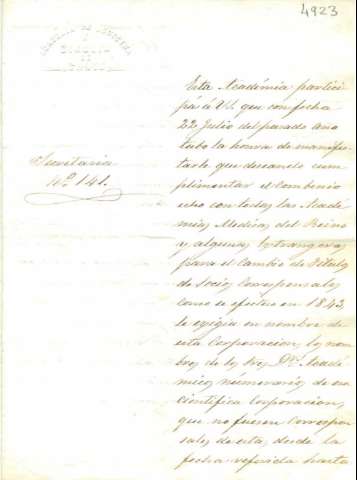 4923
ACADEMIA DE
Secretaria
Nº 141.
Esta Académia partici
pa á U.S. que con fecha
22 Julio del pasado año
tubo la honra de manifes
tarle que deseando cum
plimentar el Combenio
echo con todas las Acadé
mias Medicas del Reino
y algunas Estrangeras
para el Cambio de Titulos
de Socios Corresponsales
como se efectuo en 1843,
le exigia en nombre de
esta Corporacion, los nom
bres de los Sres. Drs. Acadé
micos numerarios de esa
cientifica Corporacion,
que no fuesen Correspon
sales de esta, desde la
fecha referida hasta